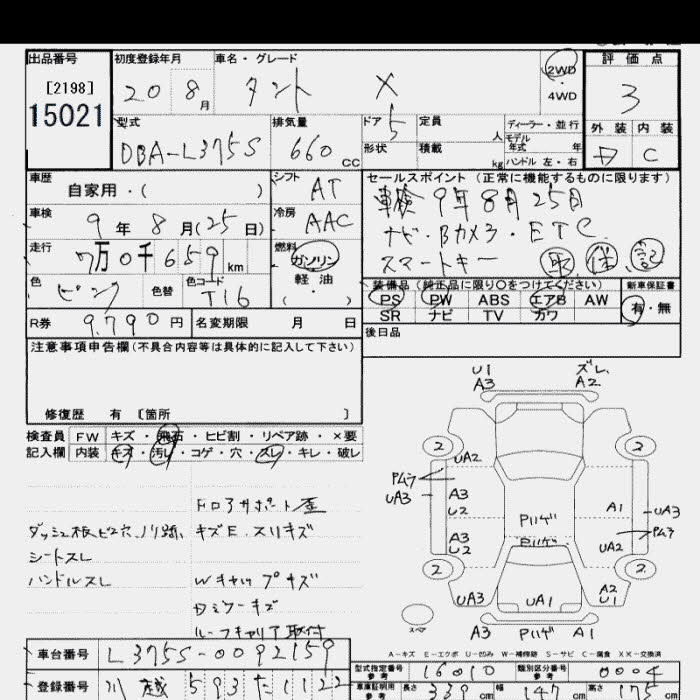 出品番号 初度登録年月 車名・グレード 2WD 評価点
[2198] 20 8月 タント X 4WD 3
15021
型式 排気量 ドア 5 定員 人 ディーラー・並行 外装 内装
DBA-L375S 660 cc 形状 積載 kg モデル年式 年 ハンドル 左・右 C
車歴 シフト AT セールスポイント (正常に機能するものに限ります)
自家用・( ) 車検 9年8月25日
車検 9年8月(25日) 冷房 AAC ナビ・Bカメラ・ETC
走行 7万0千659km 燃料 ガソリン スマートキー 取 保 記
軽油
( ・ )
色 ピンク 色替 色コード T16 装備品 (純正品に限り○をつけてください) 新車保証書
PS PW ABS エアB AW 有・無
R券 9,790円 名変期限 月 日 SR ナビ TV カワ
注意事項申告欄(不具合内容等は具体的に記入して下さい) 後日品
修復歴 有 [箇所 ]
検査員 FW キズ・飛石・ヒビ割・リペア跡・×要
記入欄 内装 キズ・汚レ・コゲ・穴・スレ・キレ・破レ
U1 ズレ
A3 A2
2 2
UA2
Pムラ
UA3 A3 A1 UA3
U2 Pハゲ Pムラ
A3 Pハゲ UA2
U2
2 2
UA3 UA1 A2
U1
スペア A3 Pハゲ A1
ドロアサポート歪
ダッシュ板ビス穴、ノリ跡、 キズE. スリキズ
シートスレ
ハンドルスレ Wキャップキズ
Dミラーキズ
ルーフキャリア取付
A-キズ E-エクボ U-凹み W-補修跡 S-サビ C-腐食 XX-交換済
車台番号 L375S-0092159
型式指定番号 参考 16010 類別区分番号 参考 0004
登録番号 川越 593 た 1122
車庫証明用 参考 長さ 339 cm 幅 147 cm 高さ